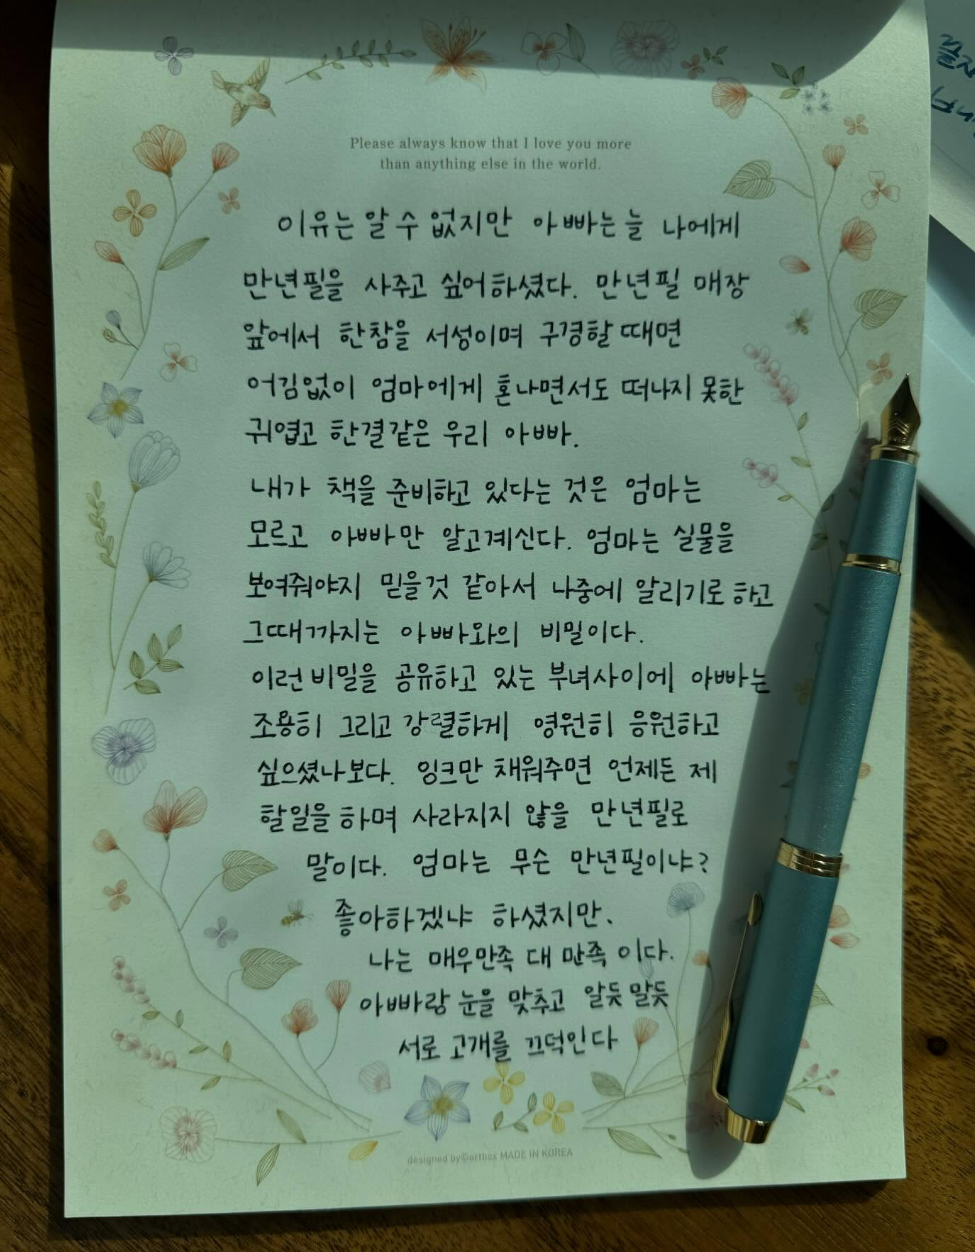 Please always know that I love you more
than anything else in the world.
이유는 알 수 없지만 아빠는 늘 나에게
만년필을 사주고 싶어하셨다. 만년필 매장
앞에서 한참을 서성이며 구경할 때면
어김없이 엄마에게 혼나면서도 떠나지 못한
귀엽고 한결같은 우리 아빠.
내가 책을 준비하고 있다는 것은 엄마는
모르고 아빠만 알고계신다. 엄마는 실물을
보여줘야지 믿을것 같아서 나중에 알리기로 하고
그때까지는 아빠와의 비밀이다.
이런 비밀을 공유하고 있는 부녀사이에 아빠는
조용히 그리고 강렬하게 영원히 응원하고
싶으셨나보다. 잉크만 채워주면 언제든 제
할일을 하며 사라지지 않을 만년필로
말이다. 엄마는 무슨 만년필이냐?
좋아하겠냐 하셨지만.
나는 매우만족 대 만족 이다.
아빠랑 눈을 맞추고 알듯 말듯
서로 고개를 끄덕인다
designed by©artbox MADE IN KOREA